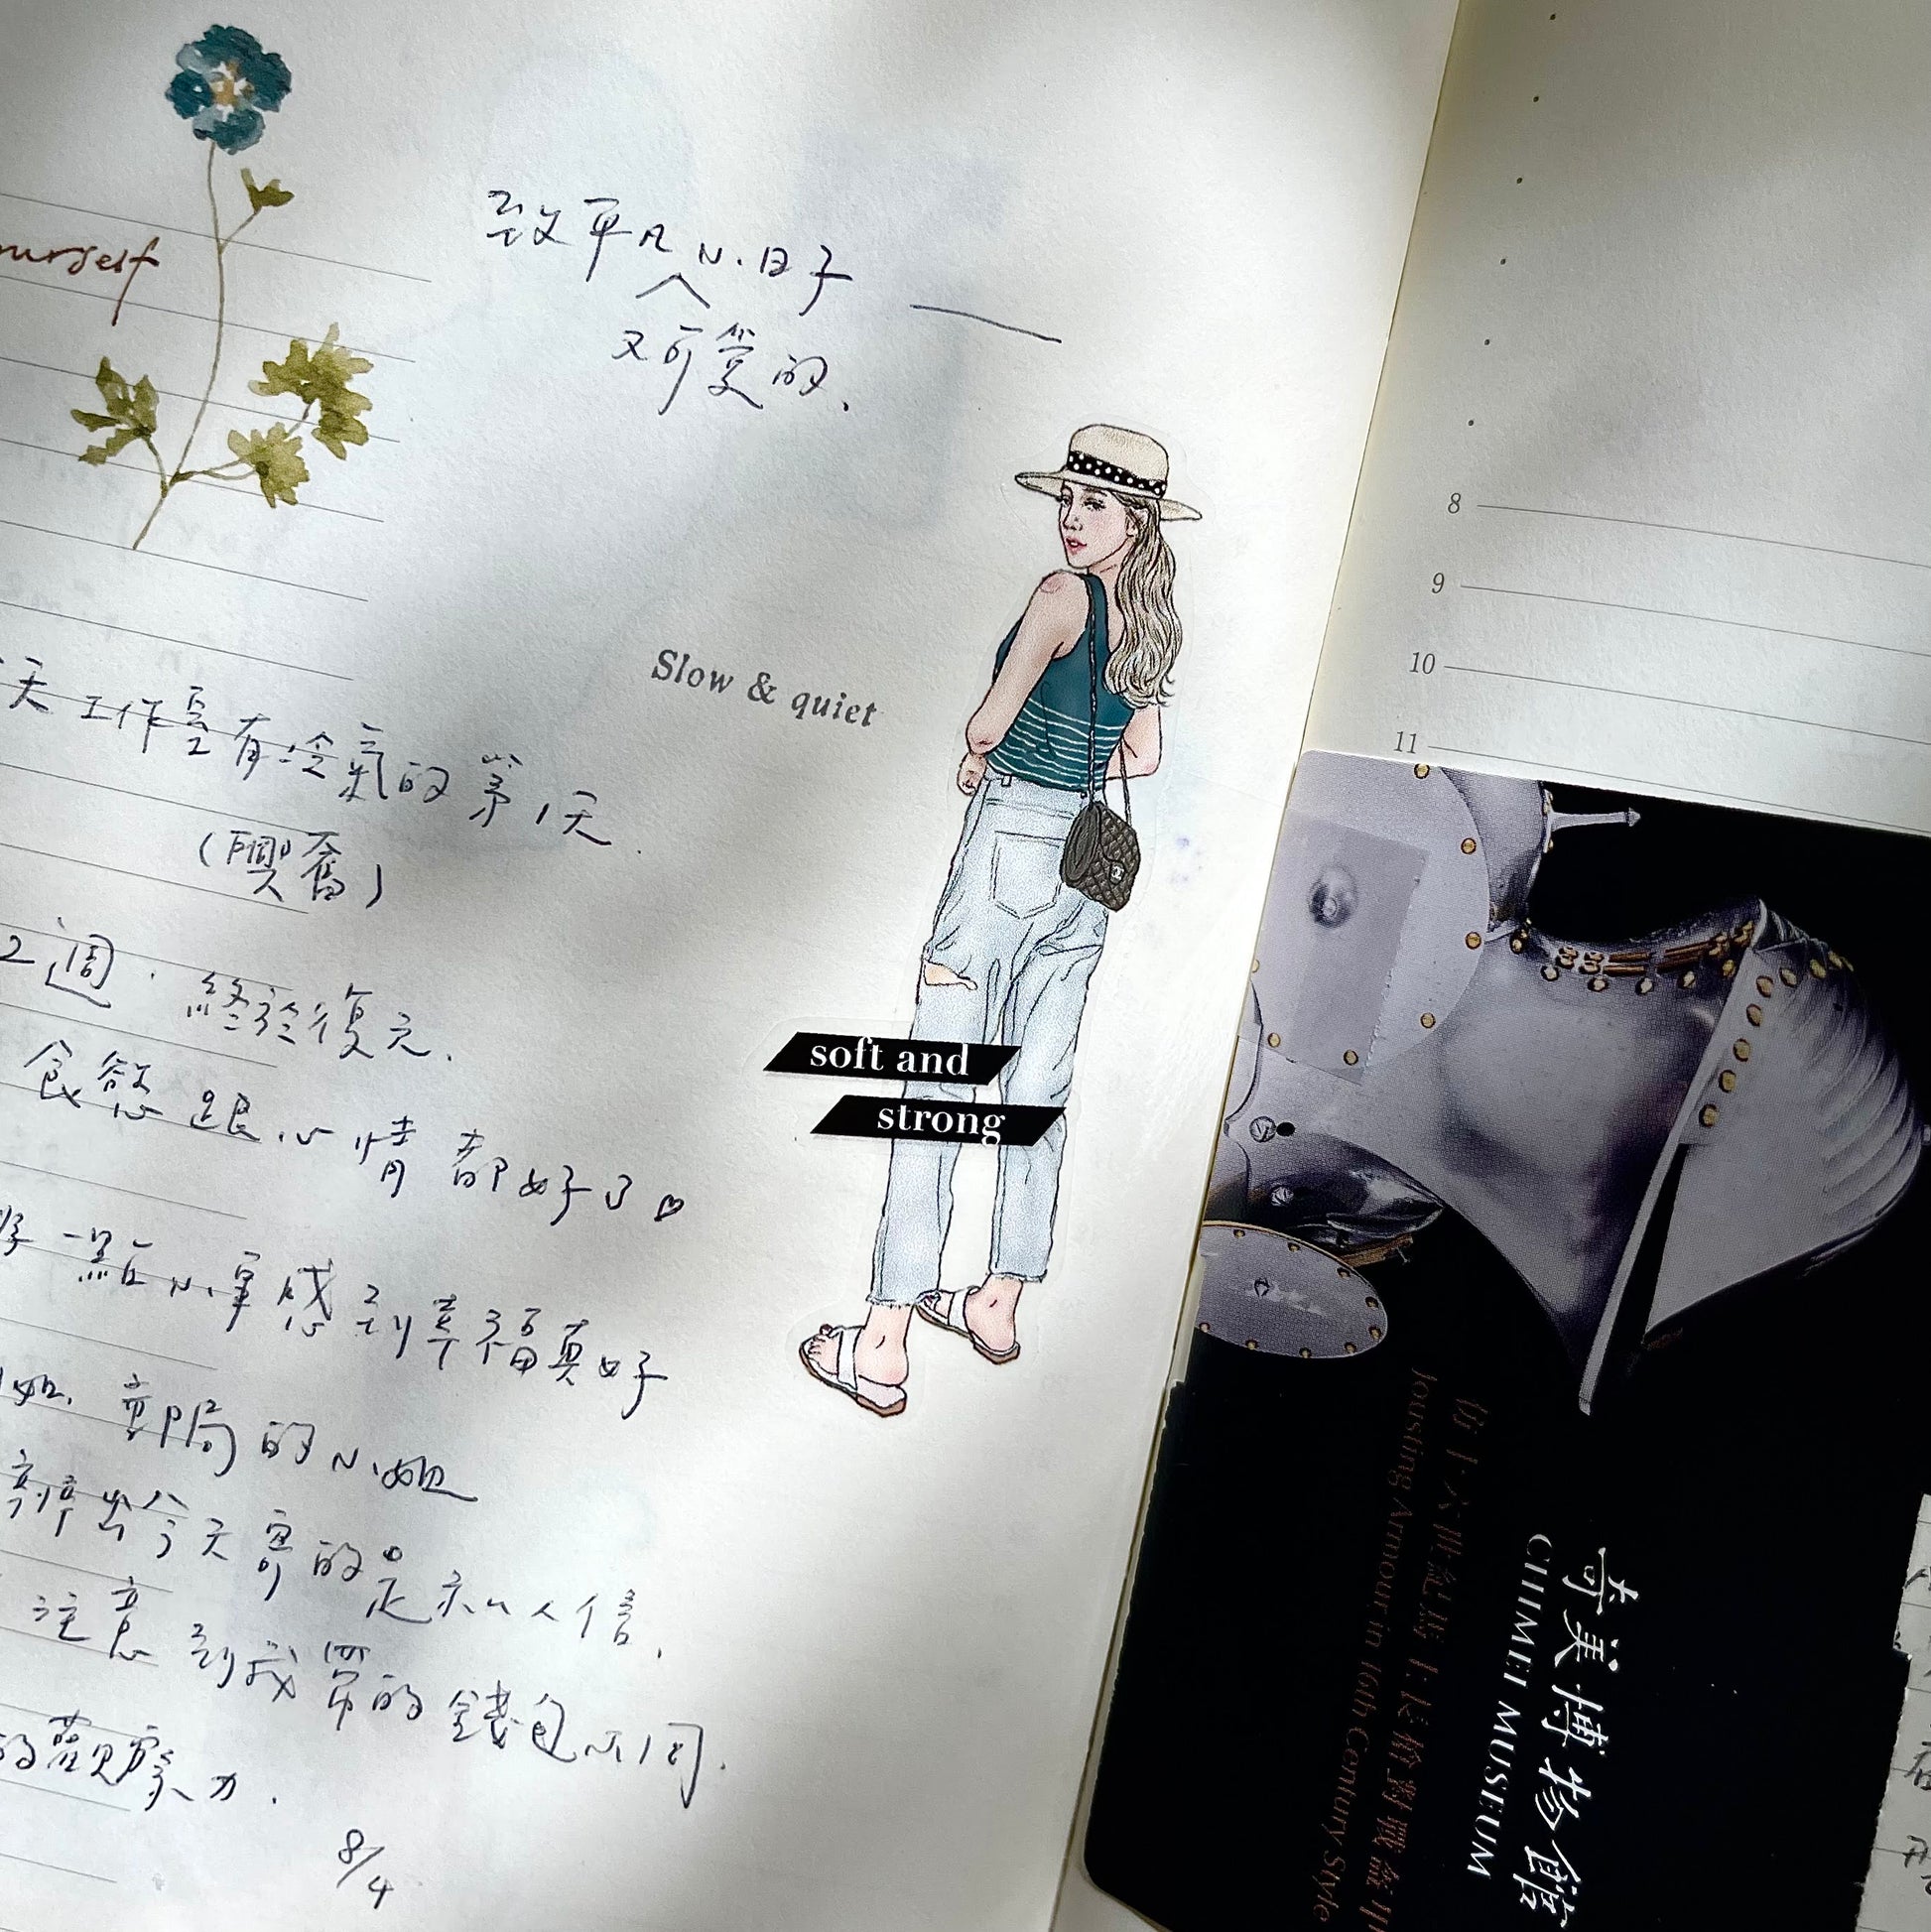 致平凡小日子 ——
又可愛的、
ourself
Slow & quiet
天工作室有冷氣的第1天.
(興奮)
2週. 終於復元.
食慾跟心情都好了♡
一點小事感到幸福真好
郵局的小姐
辨出今天寄的是私人信.
注意到我買的錢包不同.
的觀察力.
8/4
soft and
strong
8
9
10
11
仿十六世紀馬上長槍對戰盔甲
Jousting Armour in 16th Century Style
奇美博物館
CHIMEI MUSEUM